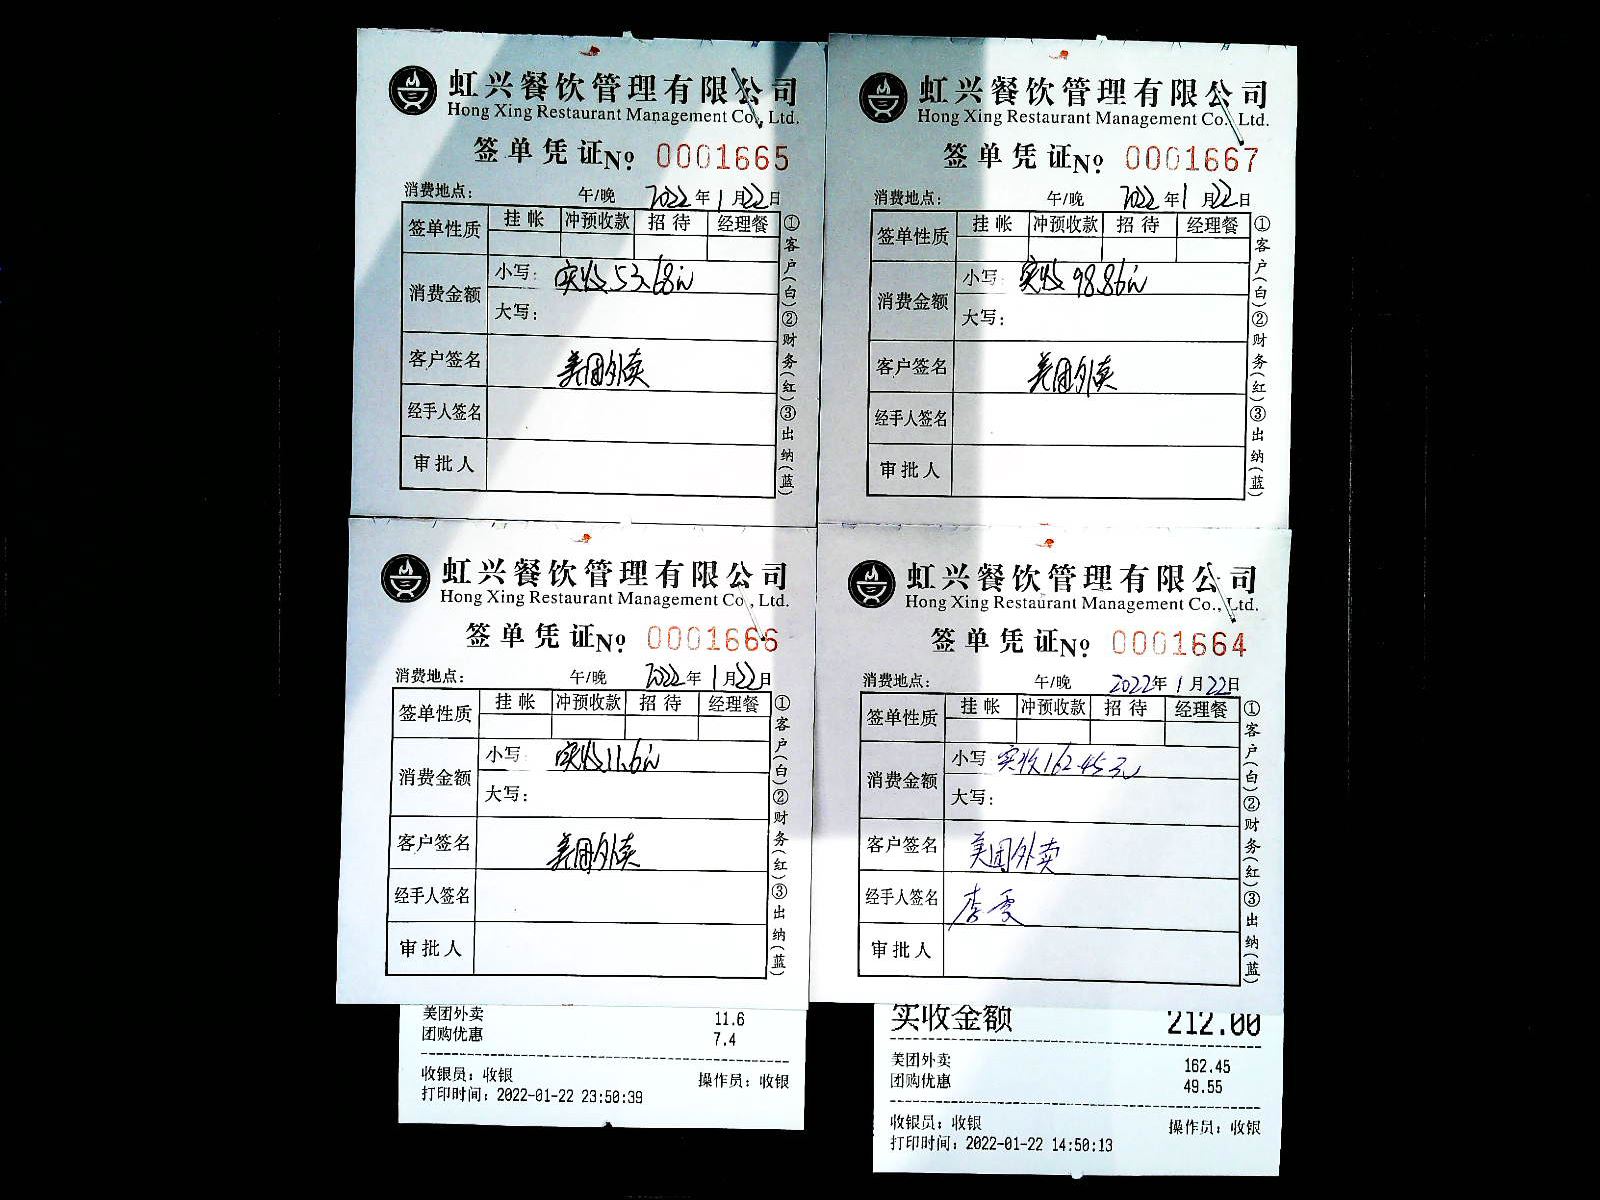 虹兴餐饮管理有限公司
Hong Xing Restaurant Management Co., Ltd.
签单凭证No 0001665
消费地点： 午/晚 2022年1月22日
签单性质 挂帐 冲预收款 招待 经理餐
消费金额 小写：实收53.68元
大写：
客户签名 美团外卖
经手人签名
审批人
①客户(白)②财务(红)③出纳(蓝)
虹兴餐饮管理有限公司
Hong Xing Restaurant Management Co., Ltd.
签单凭证No 0001667
消费地点： 午/晚 2022年1月22日
签单性质 挂帐 冲预收款 招待 经理餐
消费金额 小写：实收98.86元
大写：
客户签名 美团外卖
经手人签名
审批人
①客户(白)②财务(红)③出纳(蓝)
虹兴餐饮管理有限公司
Hong Xing Restaurant Management Co., Ltd.
签单凭证No 0001666
消费地点： 午/晚 2022年1月22日
签单性质 挂帐 冲预收款 招待 经理餐
消费金额 小写：实收11.6元
大写：
客户签名 美团外卖
经手人签名
审批人
①客户(白)②财务(红)③出纳(蓝)
美团外卖 11.6
团购优惠 7.4
收银员：收银 操作员：收银
打印时间：2022-01-22 23:50:39
虹兴餐饮管理有限公司
Hong Xing Restaurant Management Co., Ltd.
签单凭证No 0001664
消费地点： 午/晚 2022年1月22日
签单性质 挂帐 冲预收款 招待 经理餐
消费金额 小写 实收162.45元
大写：
客户签名 美团外卖
经手人签名 李雯
审批人
①客户(白)②财务(红)③出纳(蓝)
实收金额 212.00
美团外卖 162.45
团购优惠 49.55
收银员：收银 操作员：收银
打印时间：2022-01-22 14:50:13